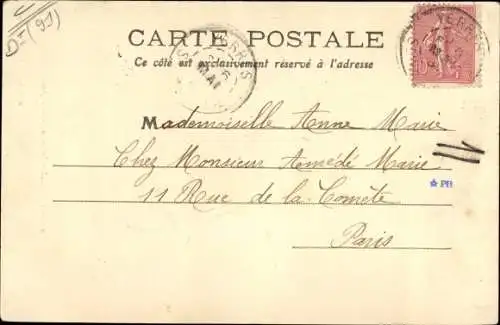 D-(91)
CARTE POSTALE
Ce côté est exclusivement réservé à l'adresse
YERRES
MAI
YERRES
Mademoiselle Anne Marie
Chez Monsieur Amédé Marie
11 Rue de la Comète
Paris
PB